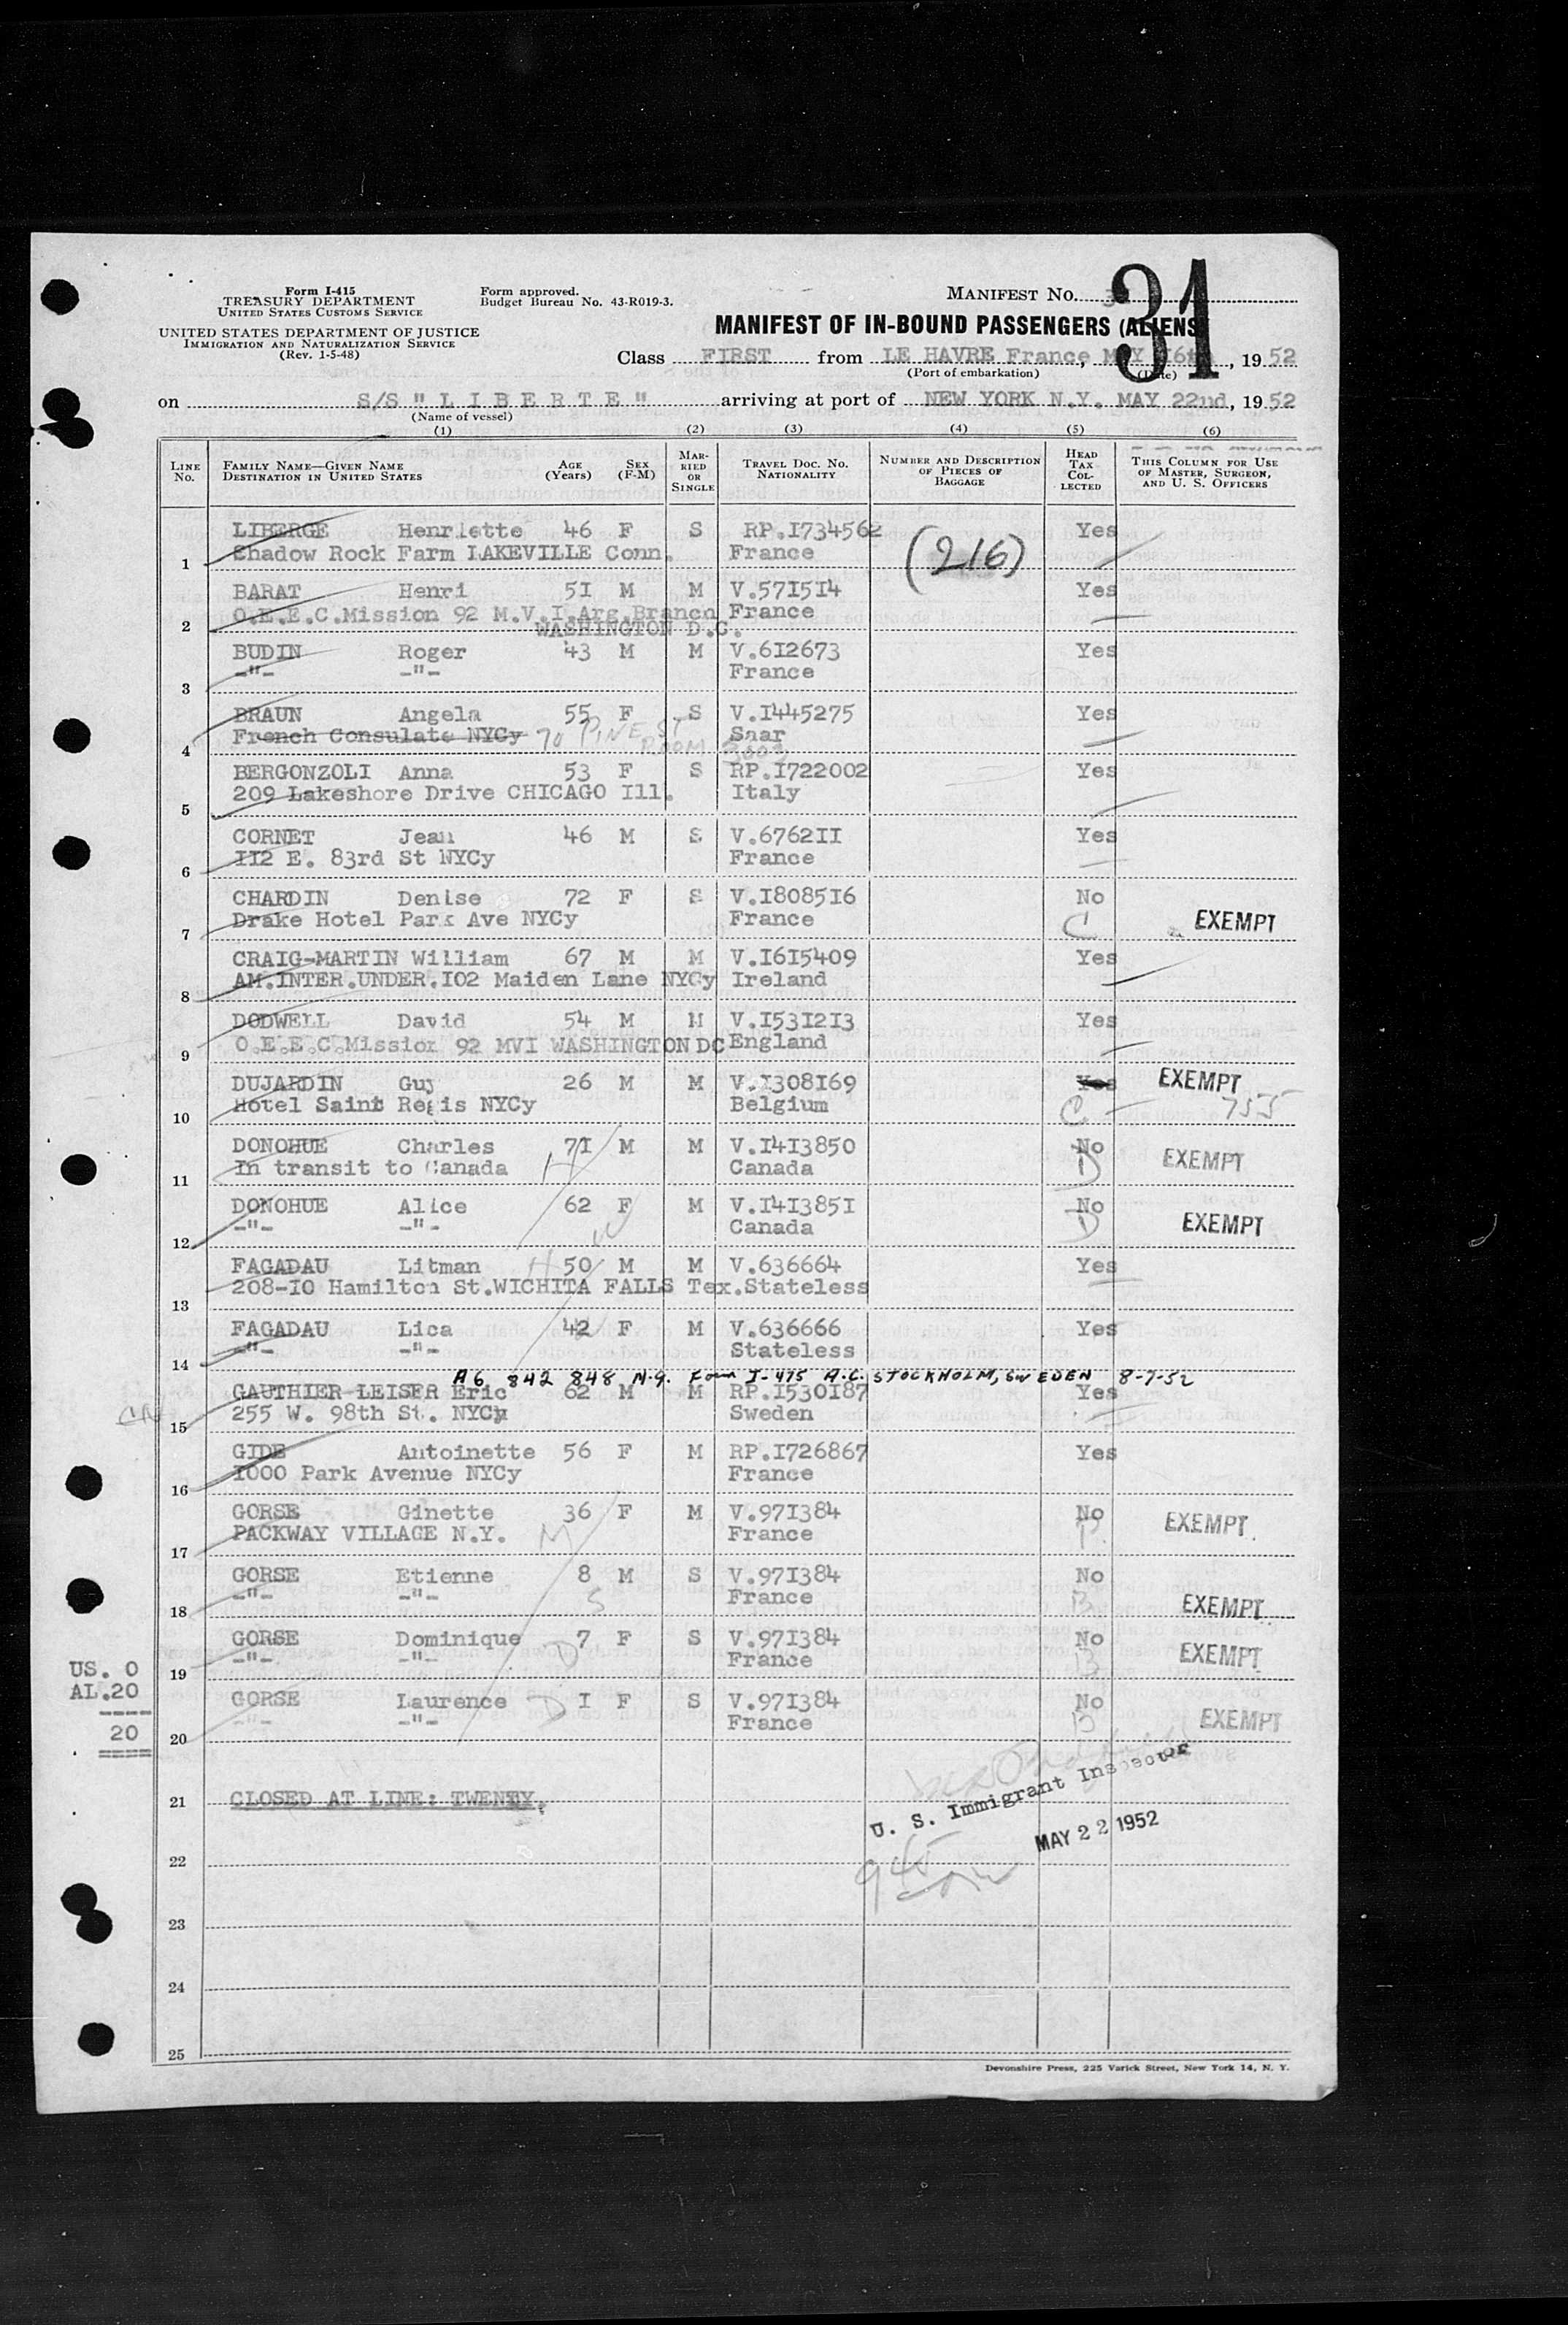 Form I-415
TREASURY DEPARTMENT
UNITED STATES CUSTOMS SERVICE
UNITED STATES DEPARTMENT OF JUSTICE
IMMIGRATION AND NATURALIZATION SERVICE
(Rev. 1-5-48)
Form approved.
Budget Bureau No. 43-R019-3.
MANIFEST NO. 31
MANIFEST OF IN-BOUND PASSENGERS (ALIENS)
Class FIRST from LE HAVRE France, MAY 16th, 19 52
(Port of embarkation) (Date)
on S/S " L I B E R T E " arriving at port of NEW YORK N.Y. MAY 22nd, 19 52
(Name of vessel)
(1) (2) (3) (4) (5) (6)
LINE No. FAMILY NAME—GIVEN NAME DESTINATION IN UNITED STATES AGE (Years) SEX (F-M) MARRIED OR SINGLE TRAVEL DOC. NO. NATIONALITY NUMBER AND DESCRIPTION OF PIECES OF BAGGAGE HEAD TAX COLLECTED THIS COLUMN FOR USE OF MASTER, SURGEON, AND U. S. OFFICERS
LIBERGE Henriette 46 F S RP.I734562 (216) Yes
1 Shadow Rock Farm LAKEVILLE Conn. France
BARAT Henri 51 M M V.57I5I4 Yes
2 O.E.E.C.Mission 92 M.V.I.Arg.Branch France
WASHINGTON D.C.
BUDIN Roger 43 M M V.6I2673 Yes
3 -"- -"- France
BRAUN Angela 55 F S V.I445275 Yes
4 French Consulate NYCy 70 PINE ST Saar
ROOM 3003
BERGONZOLI Anna 53 F S RP.I722002 Yes
5 209 Lakeshore Drive CHICAGO Ill. Italy
CORNET Jean 46 M S V.6762II Yes
6 II2 E. 83rd St NYCy France
CHARDIN Denise 72 F S V.I8085I6 No
7 Drake Hotel Park Ave NYCy France C EXEMPT
CRAIG-MARTIN William 67 M M V.I6I5409 Yes
8 AM.INTER.UNDER.I02 Maiden Lane NYCy Ireland
DODWELL David 54 M M V.I53I2I3 Yes
9 O.E.E.C.Mission 92 MVI WASHINGTON DC England
DUJARDIN Guy 26 M M V.I308I69 Yes EXEMPT
10 Hotel Saint Regis NYCy Belgium C 755
DONOHUE Charles 7I M M V.I4I3850 No
11 In transit to Canada H Canada D EXEMPT
DONOHUE Alice 62 F M V.I4I385I No
12 -"- -"- W Canada D EXEMPT
FAGADAU Litman H 50 M M V.636664 Yes
13 208-I0 Hamilton St.WICHITA FALLS Tex. Stateless
FAGADAU Lica 42 F M V.636666 Yes
14 -"- -"- Stateless
A6 842 848 N.Y. Form I-475 A.C. STOCKHOLM, SWEDEN 8-7-52
GAUTHIER-LEISER Eric 62 M M RP.I530I87 Yes
15 255 W. 98th St. NYCy Sweden
GIDE Antoinette 56 F M RP.I726867 Yes
16 I000 Park Avenue NYCy France
GORSE Ginette 36 F M V.97I384 No
17 PACKWAY VILLAGE N.Y. M France EXEMPT
GORSE Etienne 8 M S V.97I384 No
18 -"- -"- S France B EXEMPT
GORSE Dominique 7 F S V.97I384 No
19 -"- -"- D France B EXEMPT
GORSE Laurence D I F S V.97I384 No
20 -"- -"- France B EXEMPT
US. 0
AL.20
20
21 CLOSED AT LINE: TWENTY.
U. S. Immigrant Inspector
MAY 22 1952
22
945
23
24
25
Devonshire Press, 225 Varick Street, New York 14, N. Y.